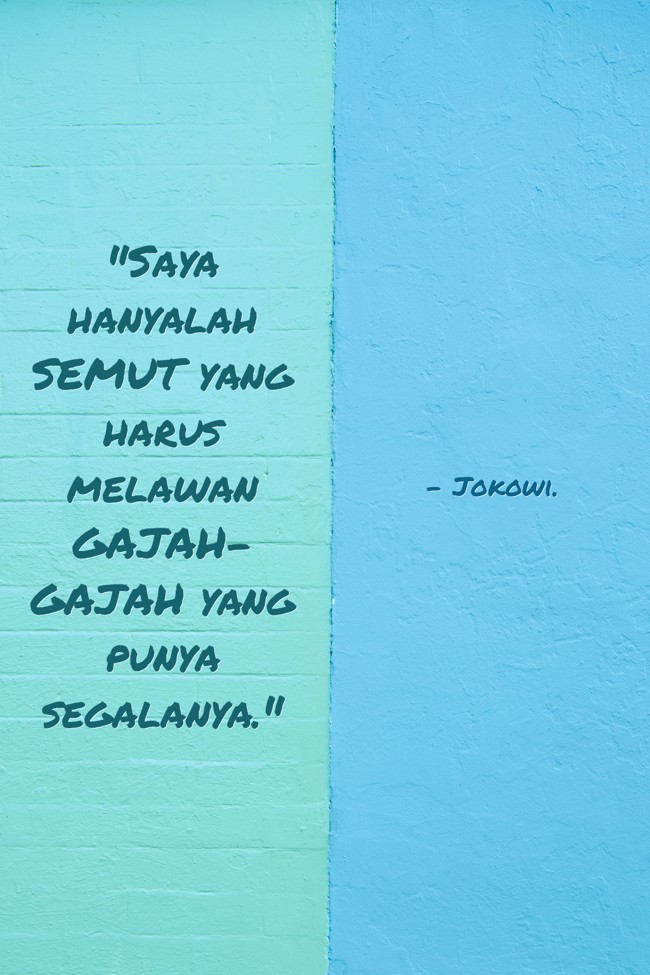 "Saya
hanyalah
SEMUT yang
harus
melawan
GAJAH-
GAJAH yang
punya
segalanya."
- Jokowi.